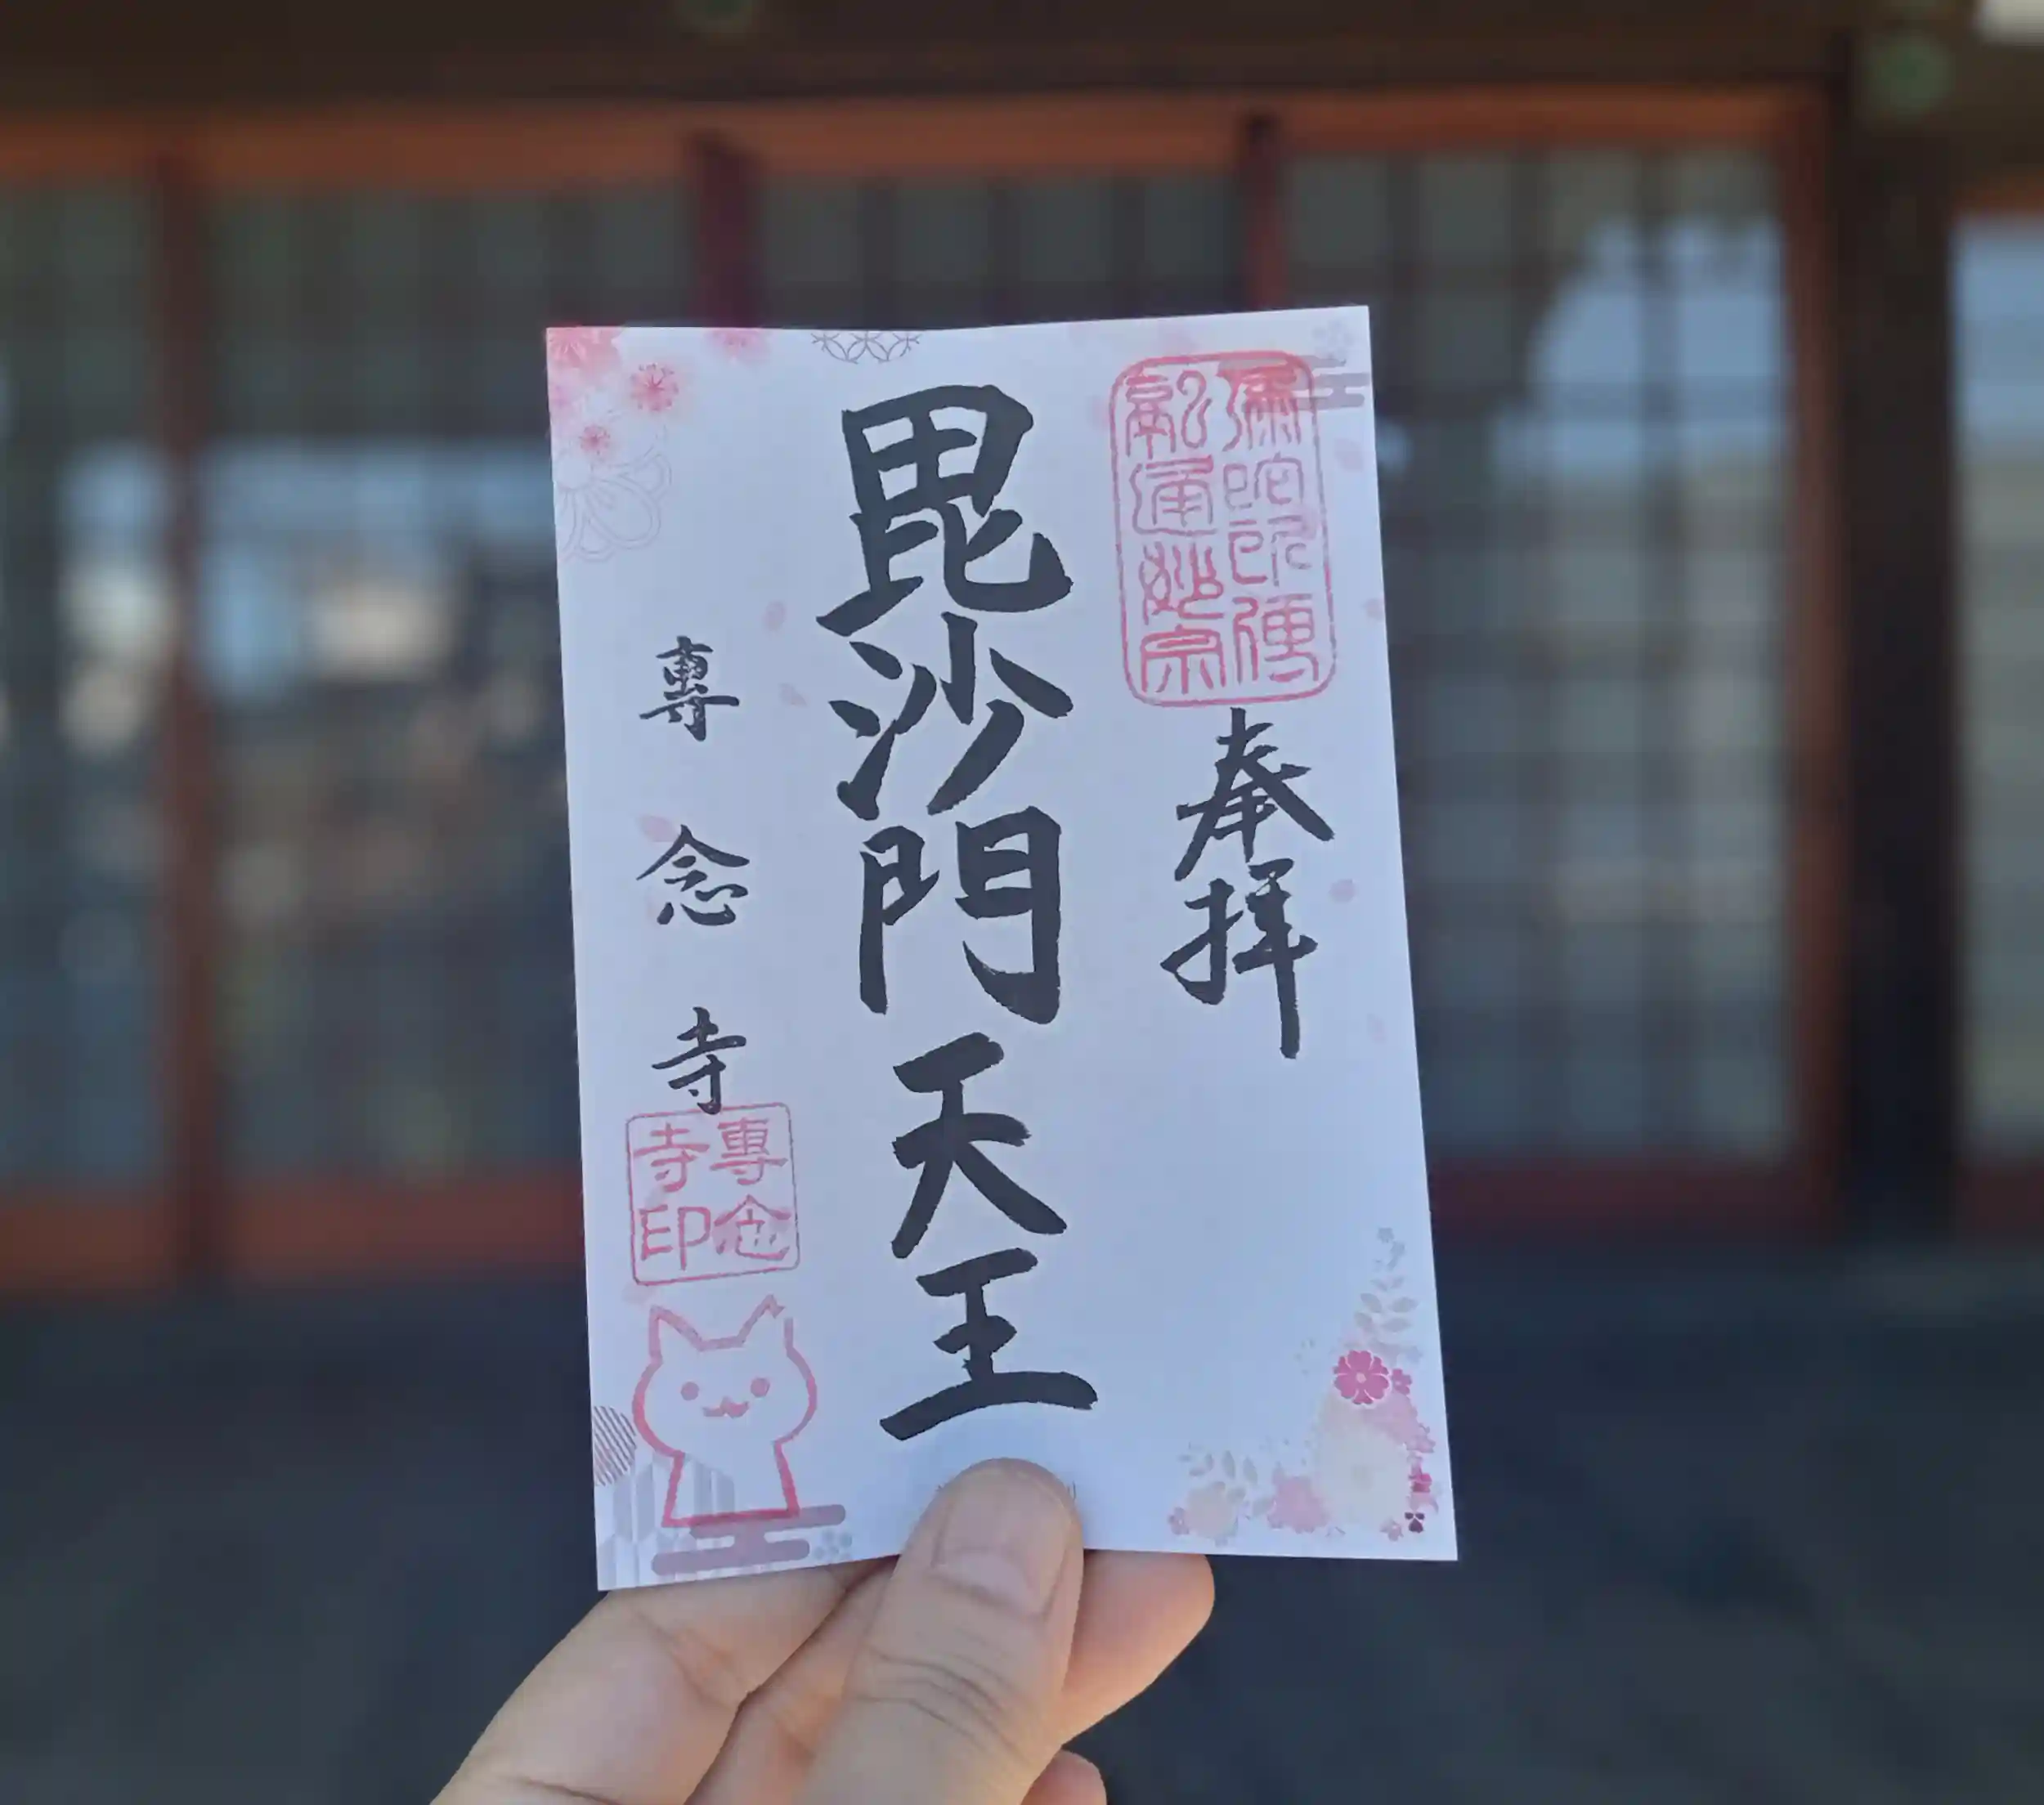 奉拝
毘沙門天王
專念寺
專念
寺印